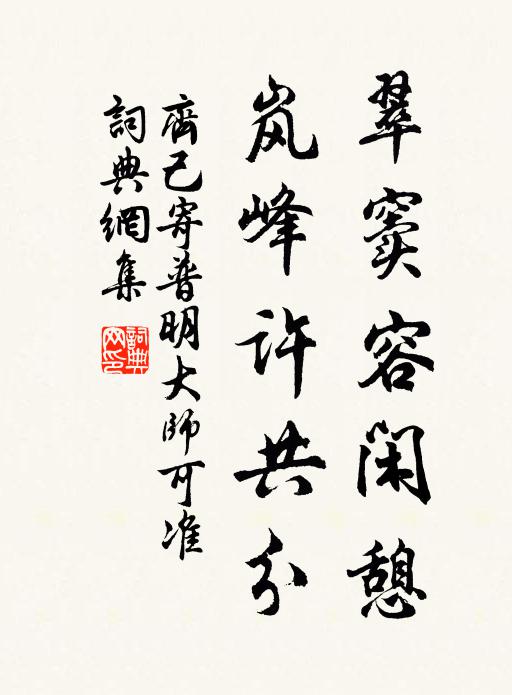 翠窦容闲憩
岚峰许共分
齊己寄普明大師可准
詞典網集
詞典網印